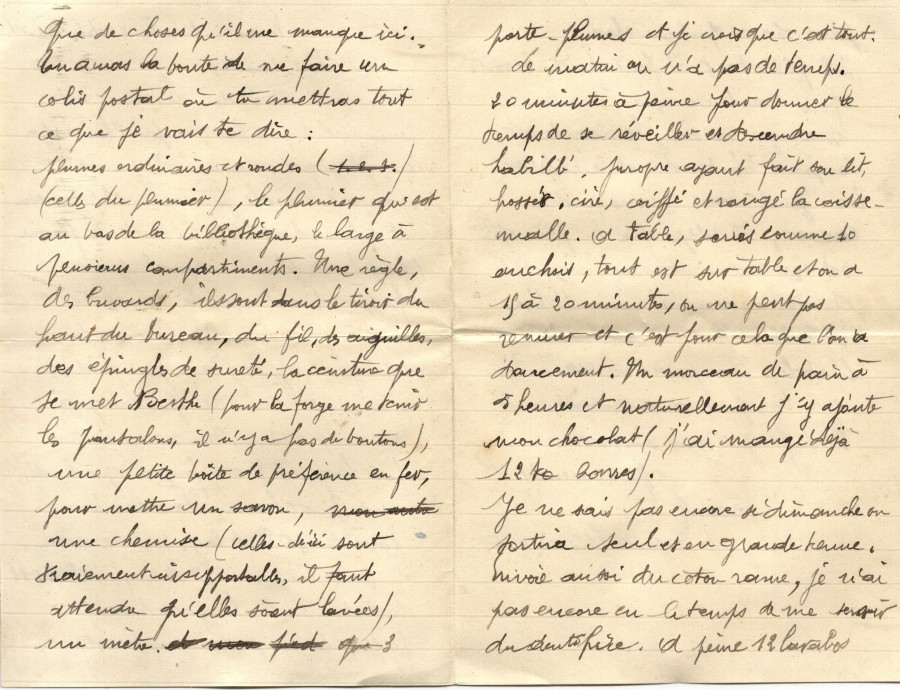 Que de choses qu'il me manque ici.
Tu auras la bonté de me faire un
colis postal où tu mettras tout
ce que je vais te dire :
plumes ordinaires et rondes (
(celles du plumier), le plumier qui est
au bas de la bibliothèque, le large à
plusieurs compartiments. Une règle,
des buvards, ils sont dans le tiroir du
haut du bureau, du fil, des aiguilles,
des épingles de sureté, la ceinture que
se met Berthe (pour la forge me tenir
les pantalons, il n'y a pas de boutons),
une petite boîte de préférence en fer,
pour mettre un savon,
une chemise (celles d'ici sont
vraiement insupportables, il faut
attendre qu'elles soient lavées),
un mètre.
porte-plumes et je crois que c'est tout.
Le matin on n'a pas de temps.
20 minutes à peine pour donner le
temps de se réveiller et descendre
habillé, propre ayant fait son lit,
brossé, ciré, coiffé et rangé la caisse-
malle. A table, serrés comme 10
anchois, tout est sur table et on a
15 à 20 minutes, on ne peut pas
remuer et c'est pour cela que l'on va
doucement. Un morceau de pain à
5 heures et naturellement j'y ajoute
mon chocolat (j'ai mangé déjà
12 barres).
Je ne sais pas encore si dimanche on
sortira seul et en grande tenue.
Envoie aussi du coton rame, je n'ai
pas encore eu le temps de me servir
du dentifrice. A peine 12 lavabos